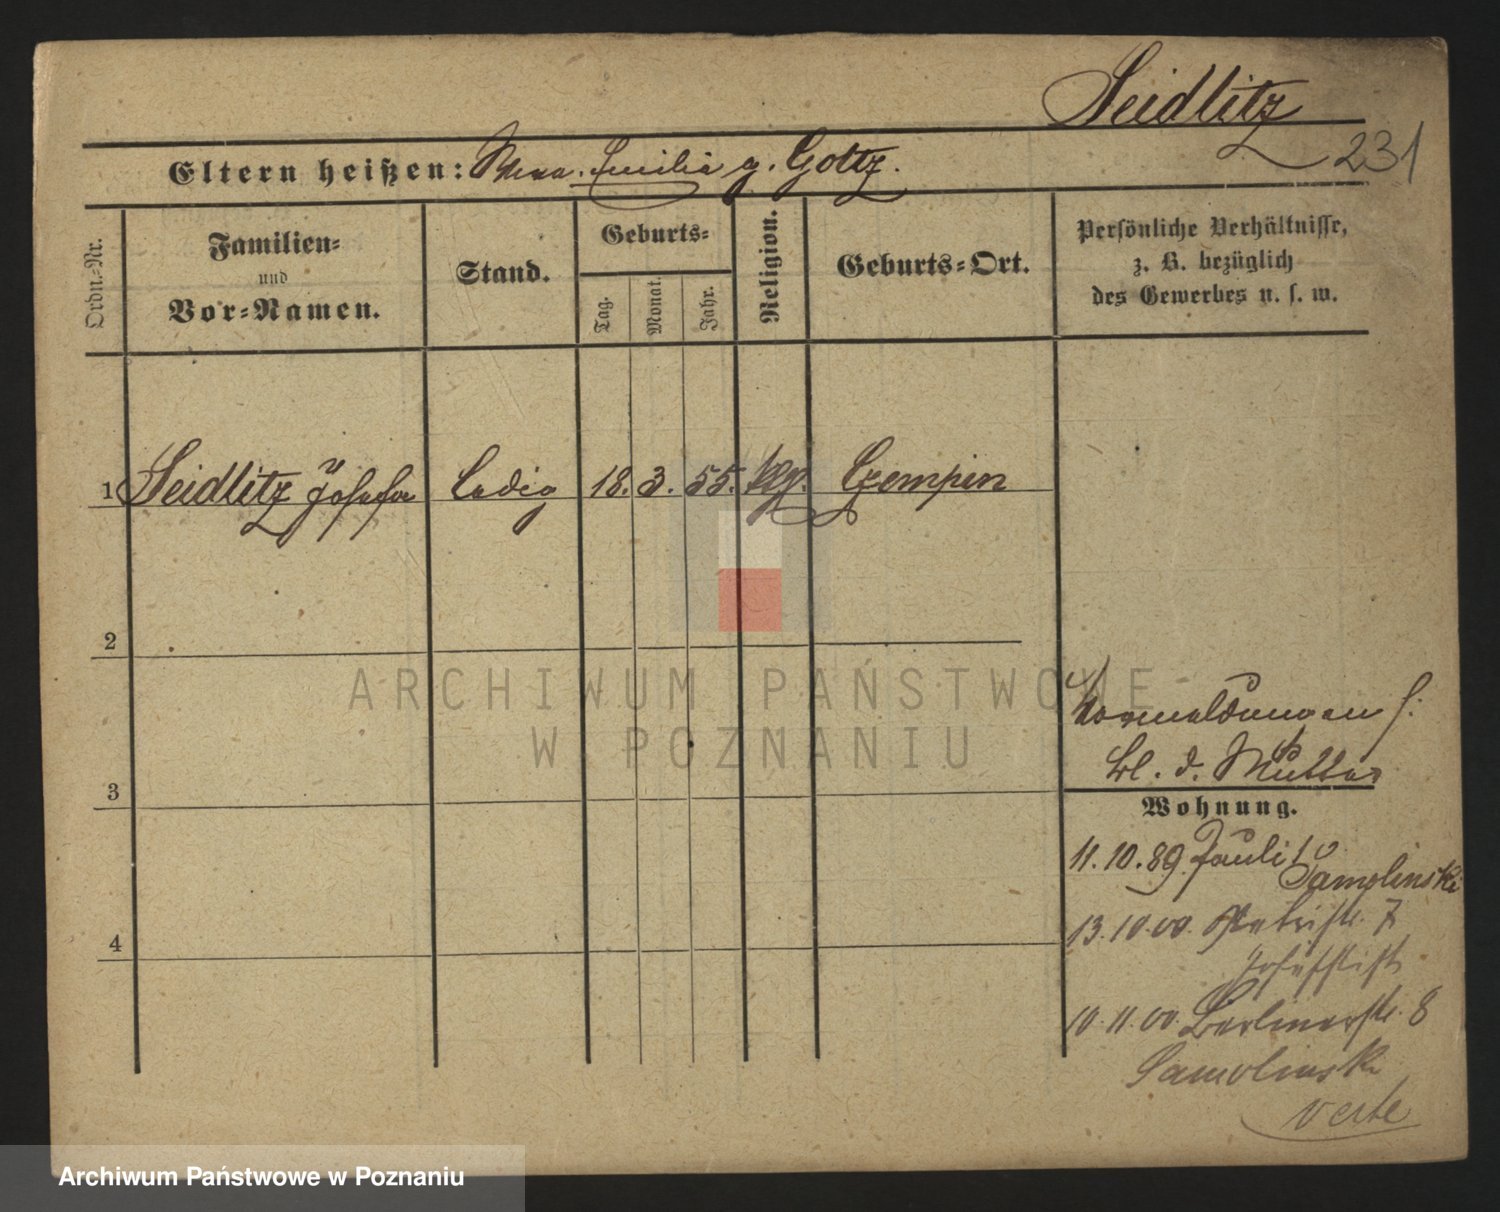 Seidlitz
231
Eltern heißen: Wwe. Emilia g. Goltz.
Ordn.-Nr.
Familien-
und
Vor-Namen.
Stand.
Geburts-
Tag.
Monat.
Jahr.
Religion.
Geburts-Ort.
Persönliche Verhältnisse,
z. B. bezüglich
des Gewerbes u. s. w.
1 Seidlitz Josefa ledig 18. 3. 55. kg. Czempin
2
3
4
ARCHIWUM PAŃSTWOWE
W POZNANIU
Vormeldungen s:
bl. d. Mutter
Wohnung.
11.10.89. Pauli 10
Samolinski
13.10.00. Petristr. 7
Josefstift
10.11.00. Berlinerstr. 8
Samolinski
verte
Archiwum Państwowe w Poznaniu